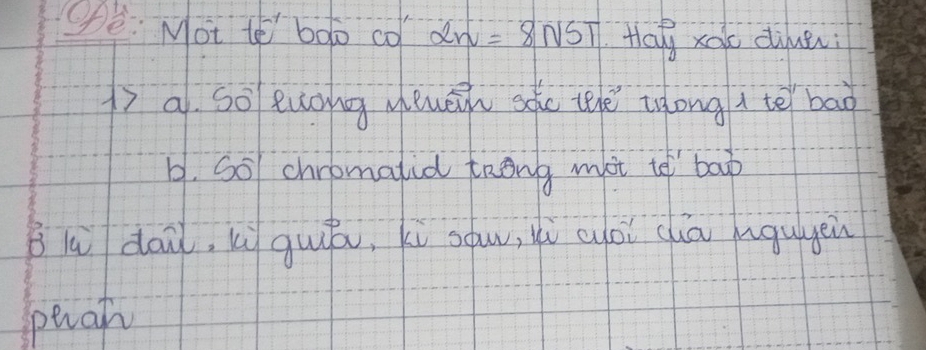 Đề: Một tế bào có 2n = 8 NST. Hãy xác định:
1> a. Số lượng nhuễn sắc thể trong 1 tế bào
b. Số chromatid trong một tế bào
ở kì đầu, kì giữa, kì sau, kì cuối của nguyên
phân